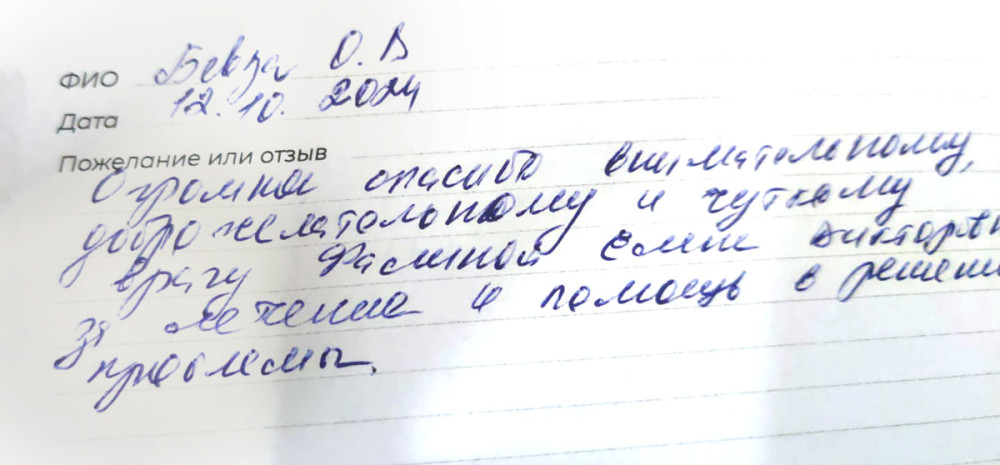 ФИО Бевза О.В
Дата 12.10.2024
Пожелание или отзыв
Огромное спасибо внимательному,
доброжелательному и чуткому
врачу Елене Викторовн
за лечение и помощь в решени
проблемы.